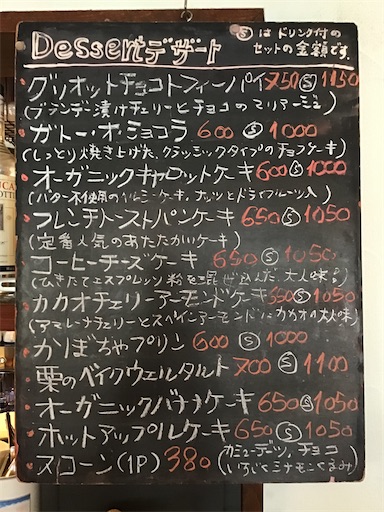 Dessert デザート
Ⓢはドリンク付の
セットの金額です。
グリオットチョコトフィーパイ 750 Ⓢ 1150
(ブランデー漬けチェリーとチョコのマリアージュ)
ガトー・オ・ショコラ 600 Ⓢ 1000
(しっとり焼き上げた、クラッシックタイプのチョコケーキ)
オーガニックキャロットケーキ 600 Ⓢ 1000
(バター不使用のヘルシーケーキ。ナッツとドライフルーツ入)
フレンチトーストパンケーキ 650 Ⓢ 1050
(定番人気のあたたかいケーキ)
コーヒーチーズケーキ 650 Ⓢ 1050
(ひきたてエスプレッソ粉を混ぜ込んだ大人味。)
カカオチェリーアーモンドケーキ 650 Ⓢ 1050
(アマレーナチェリーとスペインアーモンドにカカオの大人味)
かぼちゃプリン 600 Ⓢ 1000
栗のベイクウェルタルト 700 Ⓢ 1100
オーガニックバナナケーキ 650 Ⓢ 1050
ホットアップルケーキ 650 Ⓢ 1050
スコーン(1P) 380
(カミューデーツ、チョコ
いちじくシナモンくるみ)